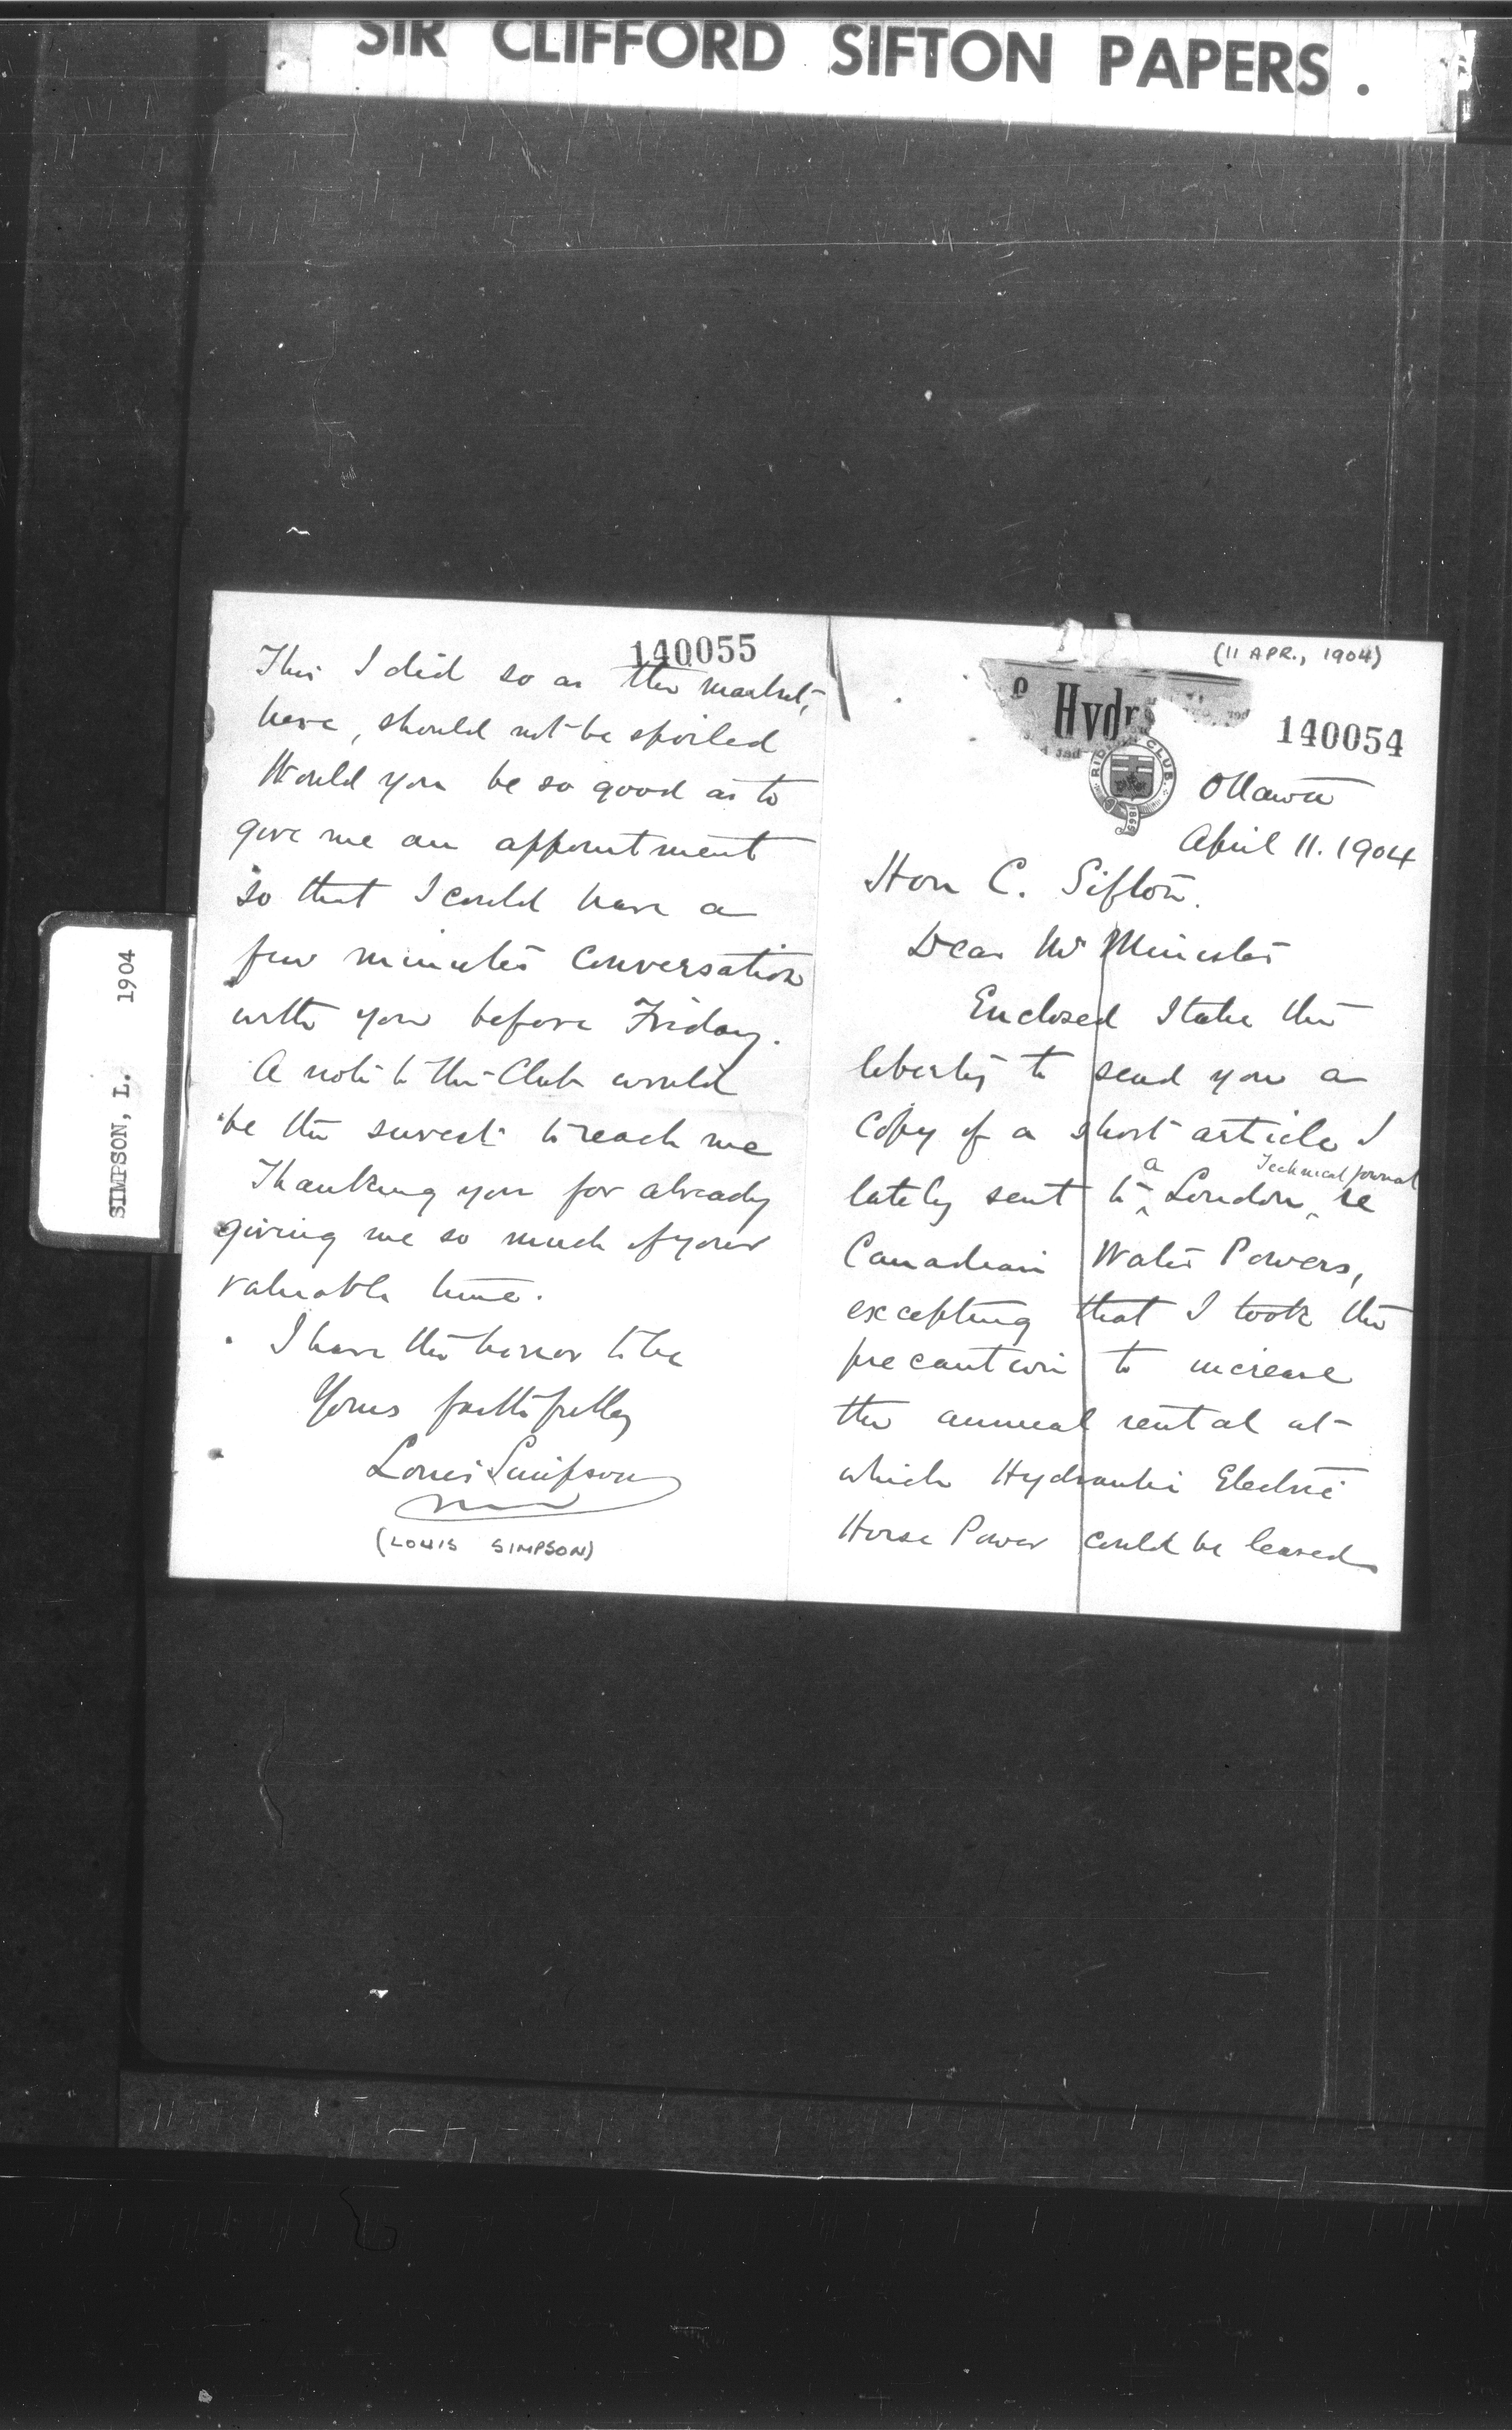 SIR CLIFFORD SIFTON PAPERS.
SIMPSON, L. 1904
(11 APR., 1904)
Hydr
140054
RID CLUB.
1865
Ottawa
April 11. 1904
Hon C. Sifton.
Dear Mr Minister
Enclosed I take the
liberty to send you a
copy of a short article I
lately sent to a London Technical Journal re
Canadian Water Powers,
excepting that I took the
precaution to increase
the annual rental at
which Hydraulic Electric
Horse Power could be leased
140055
This I did so as the market,
here, should not be spoiled
Would you be so good as to
give me an appointment
so that I could have a
few minutes conversation
with you before Friday.
A note to the Club would
be the surest to reach me
Thanking you for already
giving me so much of your
valuable time.
I have the honor to be
Yours faithfully
Louis Simpson
(LOUIS SIMPSON)